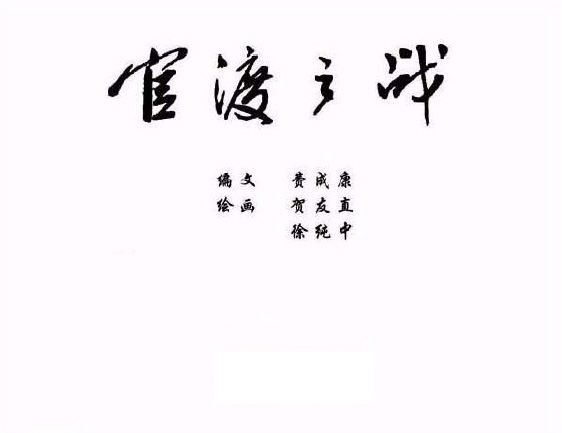 官渡之战
编文 费成康
绘画 贺友直
徐纯中